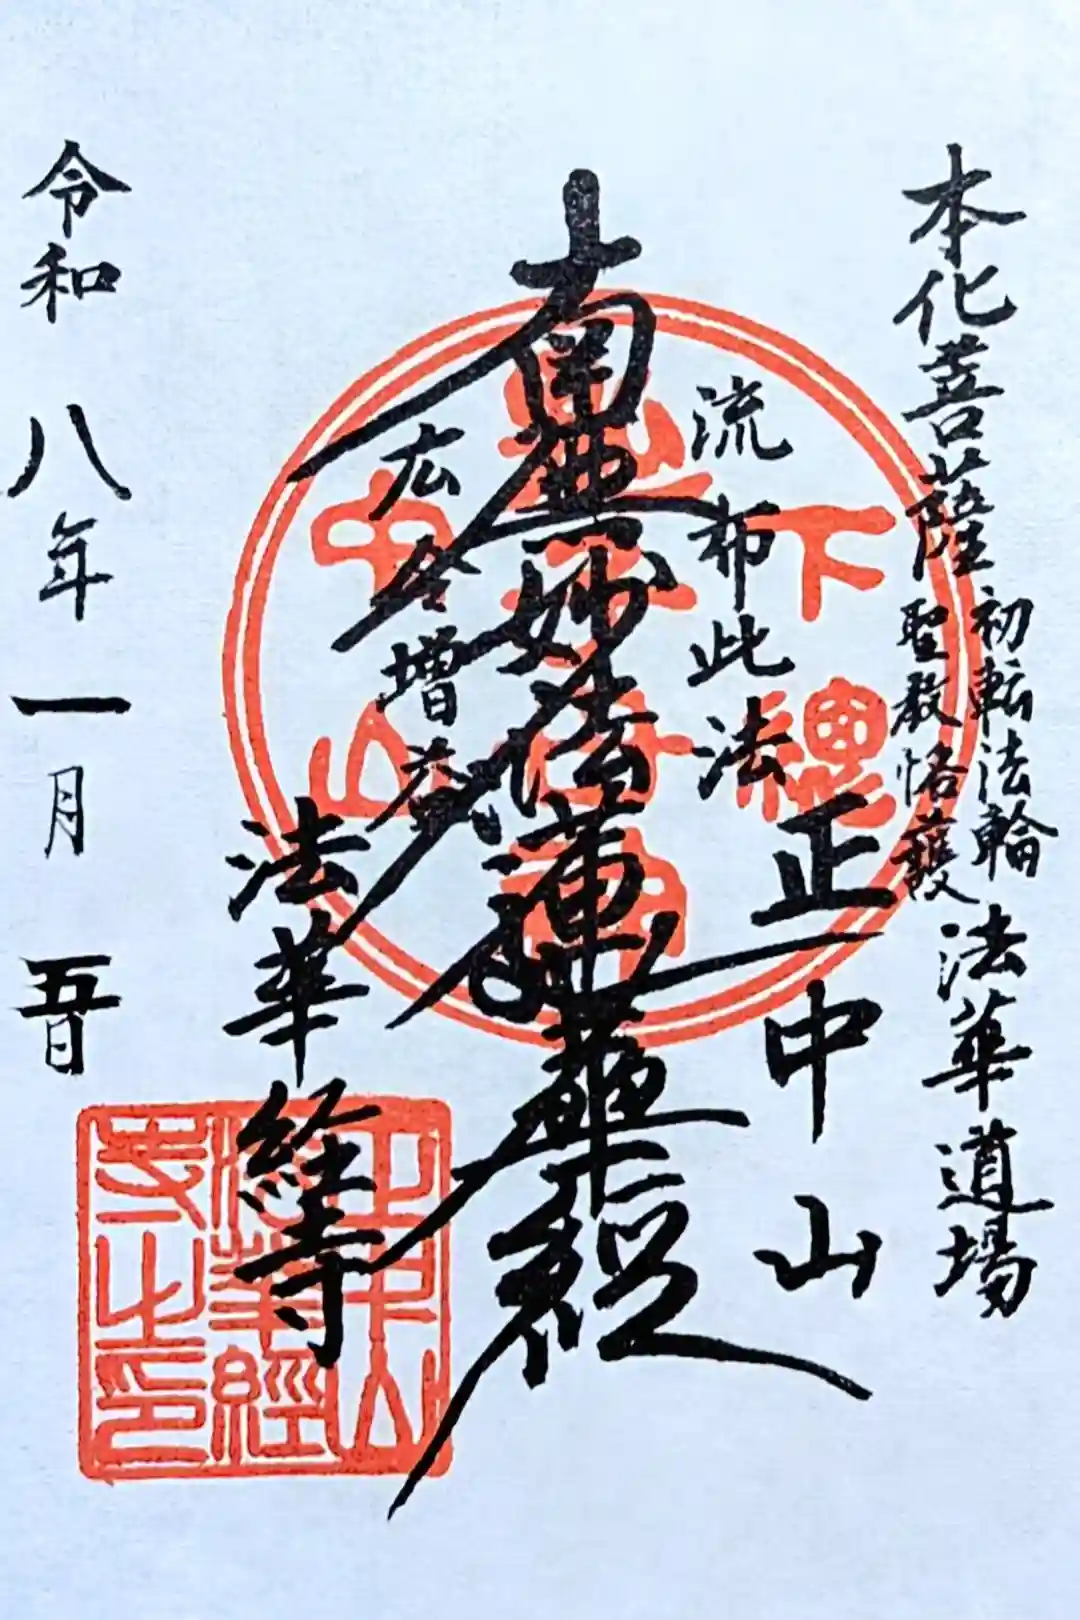 本化菩薩
初転法輪
聖教恪護
法華道場
流布此法
正中山
南無妙法蓮華経
広令増益
法華経寺
令和八年一月五日
下總
中山
正中山
法華經
寺之印